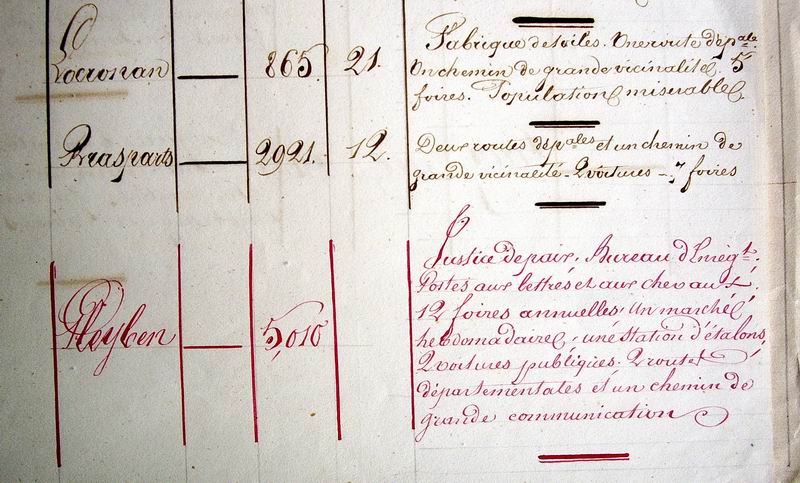 Locronan — 865. 21. Fabrique de toiles. Une route dép.ale
Un chemin de grande vicinalité. 5
foires. Population miserable.
Brasparts — 2921. 12. Deux routes dép.ales et un chemin de
grande vicinalité - 2 voitures - 7 foires
Pleyben — 5,010 Justice de paix, Bureau d'Enregt.
Postes aux lettrés et aux chevaux.
12 foires annuelles, Un marché
hebdomadaire, une station d'étalons,
2 voitures publiques. 2 routes
départementales et un chemin de
grande communication